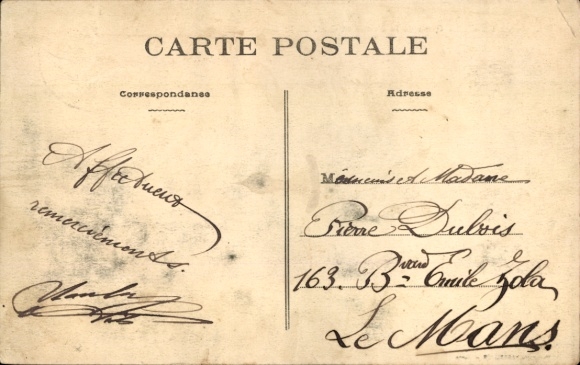 CARTE POSTALE
Correspondance
Adresse
Affectueux
remerciements.
Monsieur et Madame
Pierre Dubois
163. Bvard Emile Zola
Le Mans.